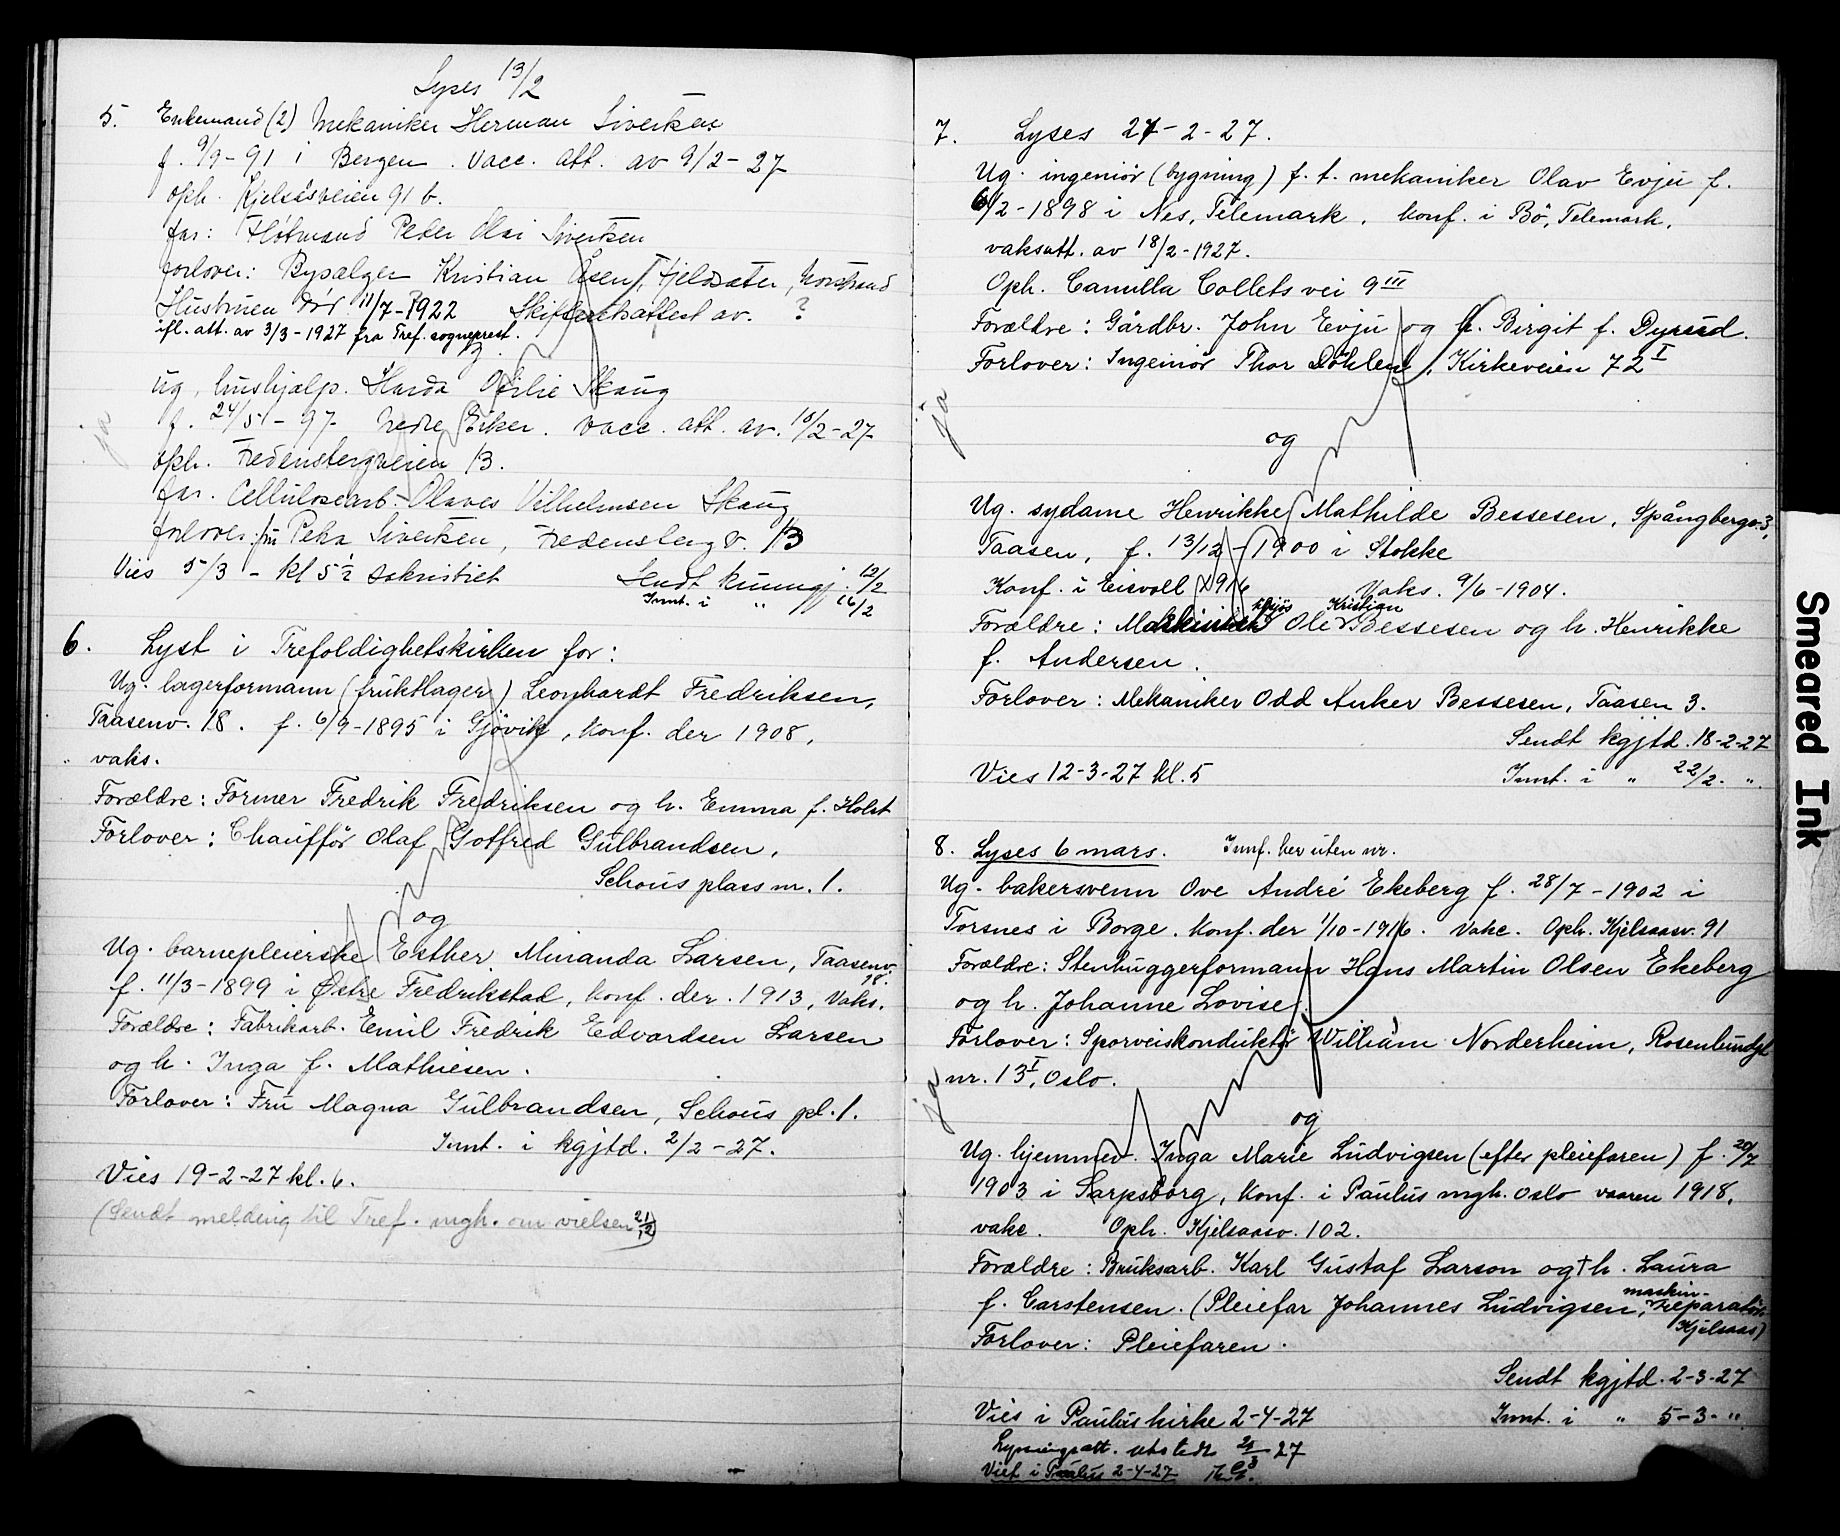 Lyses 13/2
5. Enkemand (2) Mekaniker Herman Sivertsen
f. 9/9-91 i Bergen. Vacc. att. av 9/2-27
oph. Kjelsåsveien 91 b.
far: Fløtmand Peder Olai Sivertsen
forlover: Bypælger Kristian Åsen, Fjeldsæter, Nordstrand
Hustruen død 11/7-1922 Skifteretsattest av. ?
ifl. att. av 3/3-1927 fra Tref. sogneprest.
ug. hushjælp. Harda Otilie Skaug
f. 24/5-97 Nedre Eiker. vacc. att. av. 10/2-27
oph. Fredensborgveien 13.
far. Cellulosearb. Olaves Vilhelmsen Skaug
forlover: fru Petra Sivertsen, Fredensborgv. 13
Vies 5/3 - kl 5½ sakristiet Sendt kunngj. 12/2
Innt. i " 16/2
ja
6. Lyst i Trefoldighetskirken for:
Ug. lagerformann (fruktlager) Leonhardt Fredriksen,
Taasenv. 18. f. 6/9-1895 i Gjövik, konf. der 1908,
vaks.
Forældre: Former Fredrik Fredriksen og h. Emma f. Holst
Forlover: Chaufför Olaf Gotfred Gulbrandsen,
Schous plass nr. 1.
og
Ug. barnepleierske Esther Miranda Larsen, Taasenv. 18.
f. 11/3-1899 i Østre Fredrikstad, konf. der. 1913, Vaks.
Forældre: Fabrikarb. Emil Fredrik Edvardsen Larsen
og h. Inga f. Mathiesen.
Forlover: Fru Magna Gulbrandsen, Schous pl. 1.
Innt. i kgjtd. 2/2-27.
Vies 19-2-27 kl. 6.
(Sendt melding til Tref. mgh. om vielsen 21/2)
7. Lyses 27-2-27.
Ug. ingeniör (bygning) f. t. mekaniker Olav Evju f.
6/2-1898 i Nes, Telemark, konf. i Bö, Telemark,
vaksatt. av 18/2-1927.
Oph. Camilla Collets vei 9 III
Forældre: Gårdbr. John Evju og h. Birgit f. Dyrud.
Forlover: Ingeniör Thor Döhlen, Kirkeveien 72 I
ja
og
Ug. sydame Henrikke Mathilde Bessesen, Spångbergv. 3,
Taasen, f. 13/12-1900 i Stokke
Konf. i Eisvoll 1916 Vaks. 9/6-1904.
Forældre: Ole Kristian Bessesen og h. Henrikke
f. Andersen.
Forlover: Mekaniker Odd Anker Bessesen, Taasen 3.
Sendt kgjtd. 18-2-27
Vies 12-3-27 kl. 5 Innt. i " 22/2. "
8. Lyses 6 mars. Innf. her uten nr.
Ug. bakersvenn Ove André Ekeberg f. 28/7-1902 i
Torsnes i Borge. Konf. der 1/10-1916. Vakc. Oph. Kjelsaasv. 91
Forældre: Stenhuggerformann Hans Martin Olsen Ekeberg
og h. Johanne Lovise.
Forlover: Sporveiskonduktör William Norderheim, Rosenlundgt
nr. 13 I, Oslo.
ja
og
Ug. hjemmev. Inga Marie Ludvigsen (efter pleiefaren) f. 20/7
1903 i Sarpsborg, konf. i Paulus mgh. Oslo vaaren 1918,
vakc. Oph. Kjelsaasv. 102.
Forældre: Bruksarb. Karl Gustaf Larson og † h. Laura
f. Carstensen. (Pleiefar Johannes Ludvigsen, maskin-reparatör
Kjelsaas)
Forlover: Pleiefaren.
Sendt kgjtd. 2-3-27
Vies i Paulus kirke 2-4-27 Innt. i " 5-3-"
Lysningsatt. utstedt 21/3 27
Viet i Paulus 2-4-27
Smeared Ink